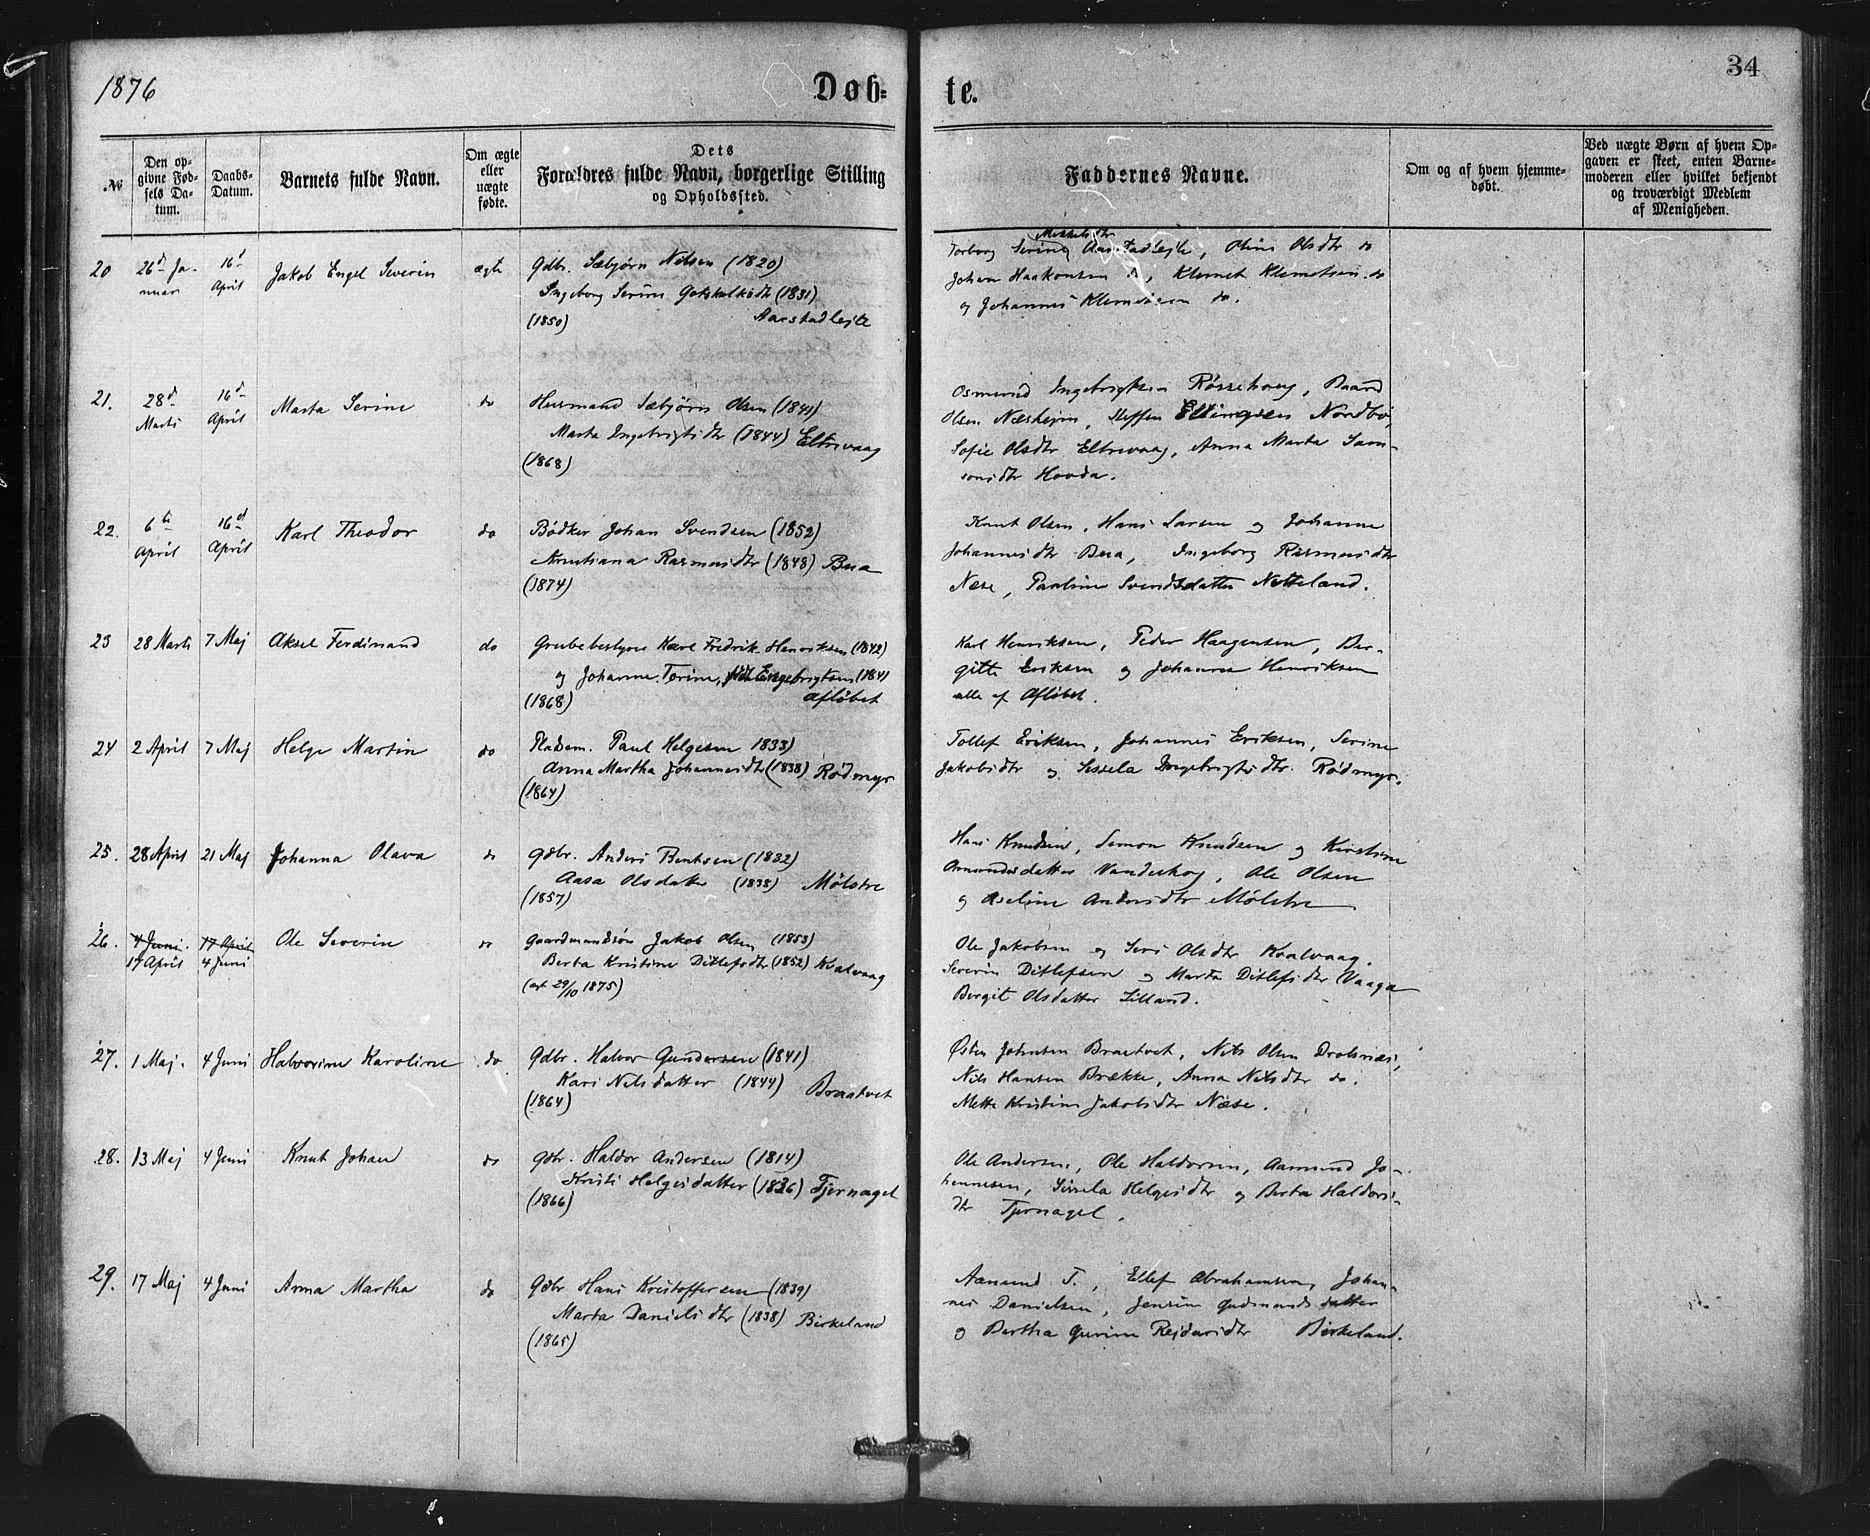 1876
Døb-
te.
34
№
Den op-
givne Fød-
sels Da-
tum.
Daabs-
Datum.
Barnets fulde Navn.
Om ægte
eller
uægte
fødte.
Dets
Forældres fulde Navn, borgerlige Stilling
og Opholdssted.
Faddernes Navne.
Om og af hvem hjemme-
døbt.
Ved uægte Børn af hvem Op-
gaven er skeet, enten Barne-
moderen eller hvilket bekjendt
og troværdigt Medlem
af Menigheden.
20
26d Ja-
nuar
16d
April
Jakob Engel Severin
ægte
Gdbr. Sæbjørn Nilsen (1820)
Ingeborg Serine Gotskalksdtr (1831)
(1850) Aarstadlejte
Torborg Serine Mikkelsdtr Aarstadlejte, Oline Olsdtr do
Johan Haakonsen, Klemet Klemetsen do
og Johannes Klemetsen do.
21.
28d
Marts
16d
April
Marta Serine
do
Huusmand Sæbjørn Olsen (1841)
Marta Ingebrigtsdtr (1844) Eltrevaag
(1868)
Osmund Ingebrigtsen Røssehoug, Baard
Olsen Næshejm, Steffen Ellingsen Nordbø,
Sofie Olsdtr Eltrevaag, Anna Marta Sam-
sonsdtr Hovda.
22.
6te
April
16d
April
Karl Theodor
do
Bødker Johan Svendsen (1852)
Kristiana Rasmusdtr (1848) Bua
(1874)
Knut Olsen, Hans Larsen og Johanne
Johannesdtr Bua, Ingeborg Rasmusdtr
Næse, Pauline Svendsdatter Netteland.
23
28 Marts
7 Maj
Aksel Ferdinand
do
Grubebestyrer Karl Fredrik Henriksen (1842)
og Johanne Torine, Engebrigtsen (1841)
(1868) Afløbet
Karl Henriksen, Peder Haagensen, Ber-
gitte Eriksen og Johanna Henriksen
alle af Afløbet.
24
2 April
7 Maj
Helge Martin
do
Pladsm. Paul Helgesen 1833)
Anna Martha Johannesdtr (1838) Rødmyr
(1864)
Tollef Eriksen, Johannes Eriksen, Serine
Jakobsdtr og Sissela Ingebrigtsdtr. Rødmyr.
25.
28 April
21 Maj
Johanna Olava
do
Gdbr. Anders Bentsen (1832)
Aasa Olsdatter (1838) Mølstre
(1857)
Hans Knudsen, Simon Knudsen og Kirstine
Amundsdatter Vandeskog, Ole Olsen
og Aseline Andersdtr Mølstre
26.
4 Juni.
17 April
17 April
4 Juni
Ole Severin
do
Gaardmandsøn Jakob Olsen (1853)
Berta Kristine Ditlefsdtr (1852) Kvalvaag
(ct 29/10 1875)
Ole Jakobsen og Seri Olsdtr Kvalvaag.
Severin Ditlefsen og Marta Ditlefsdtr Vaaga
Bergit Olsdatter Lilland.
27.
1 Maj.
4 Juni
Halvorine Karoline
do
Gdbr. Halvor Gundersen (1841)
Kari Nilsdatter (1844) Braatvet
(1864)
Østen Johnsen Braatvet, Nils Olsen Drolsnæs,
Nils Hansen Brække, Anna Nilsdtr do.
Mette Kristine Jakobsdtr Næse.
28.
13 Maj
4 Juni
Knut Johan
do
Gdbr. Haldor Andersen (1814)
Kristi Helgesdatter (1836) Tjernagel
(1866)
Ole Andersen, Ole Haldorsen, Aamund Jo-
hannesen, Sissela Helgesdtr og Berta Haldors-
dtr Tjernagel.
29.
17 Maj
4 Juni
Anna Martha
do
Gdbr Hans Kristoffersen (1839)
Marta Danielsdtr (1838) Birkeland
(1865)
Aamund T., Ellef Abrahamsen, Johan-
nes Danielsen, Jensine Gudmundsdatter
og Bertha Gurine Rejdarsdtr Birkeland.